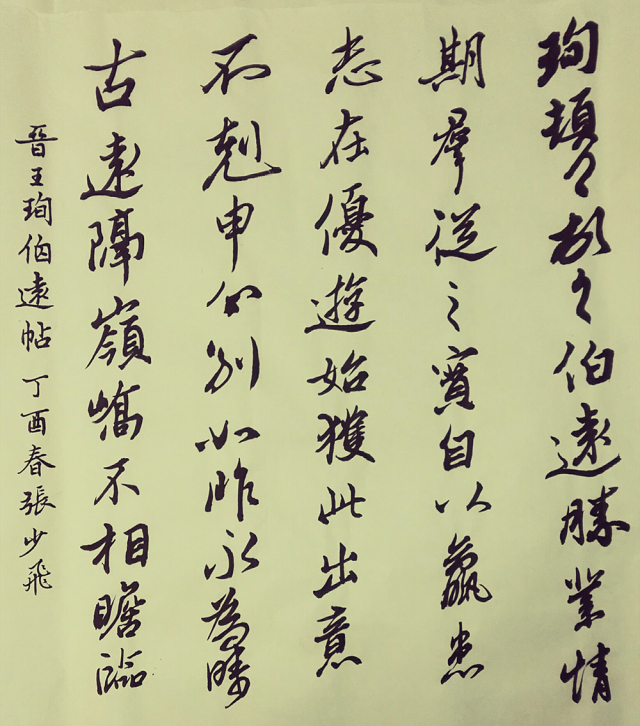 珣頓首頓首伯遠勝業情
期羣從之寳自以羸患
志在優遊始獲此出意
不剋申分別如昨永為疇
古遠隔嶺嶠不相瞻臨
晉王珣伯遠帖丁酉春張少飛